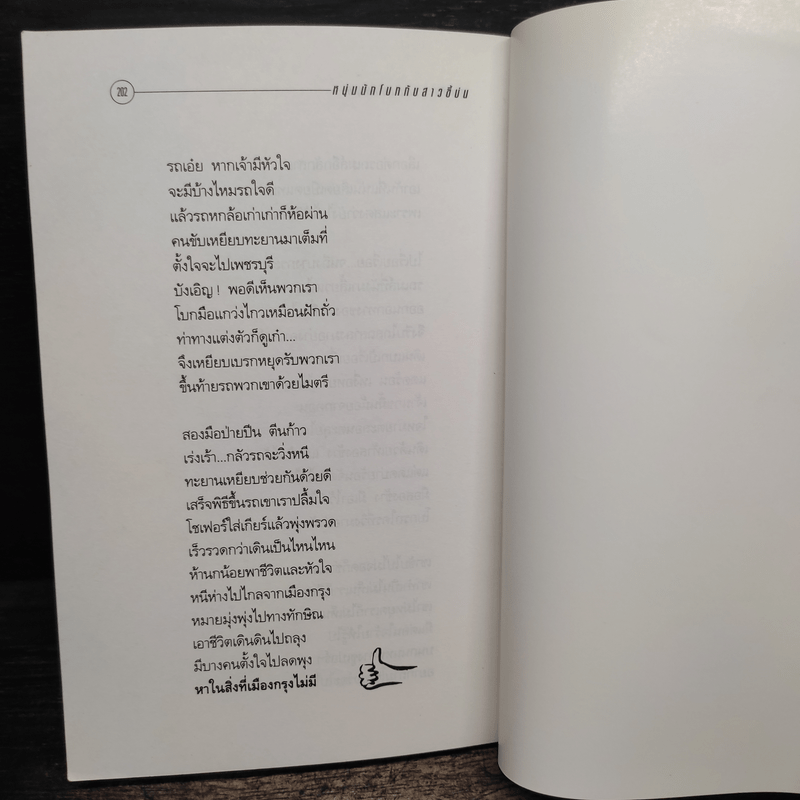 202
หนุ่มนักโบกกับสาวขี้บ่น
รถเอ๋ย หากเจ้ามีหัวใจ
จะมีบ้างไหมรถใจดี
แล้วรถหกล้อเก่าเก่าก็ห้อผ่าน
คนขับเหยียบทะยานมาเต็มที่
ตั้งใจจะไปเพชรบุรี
บังเอิญ ! พอดีเห็นพวกเรา
โบกมือแกว่งไกวเหมือนฝักถั่ว
ท่าทางแต่งตัวก็ดูเก๋า...
จึงเหยียบเบรกหยุดรับพวกเรา
ขึ้นท้ายรถพวกเขาด้วยไมตรี
สองมือป่ายปีน ตีนก้าว
เร่งเร้า...กลัวรถจะวิ่งหนี
ทะยานเหยียบช่วยกันด้วยดี
เสร็จพิธีขึ้นรถเขาเราปลื้มใจ
โชเฟอร์ใส่เกียร์แล้วพุ่งพรวด
เร็วรวดกว่าเดินเป็นไหนไหน
ห้านกน้อยพาชีวิตและหัวใจ
หนีห่างไปไกลจากเมืองกรุง
หมายมุ่งพุ่งไปทางทักษิณ
เอาชีวิตเดินดินไปถลุง
มีบางคนตั้งใจไปลดพุง
หาในสิ่งที่เมืองกรุงไม่มี